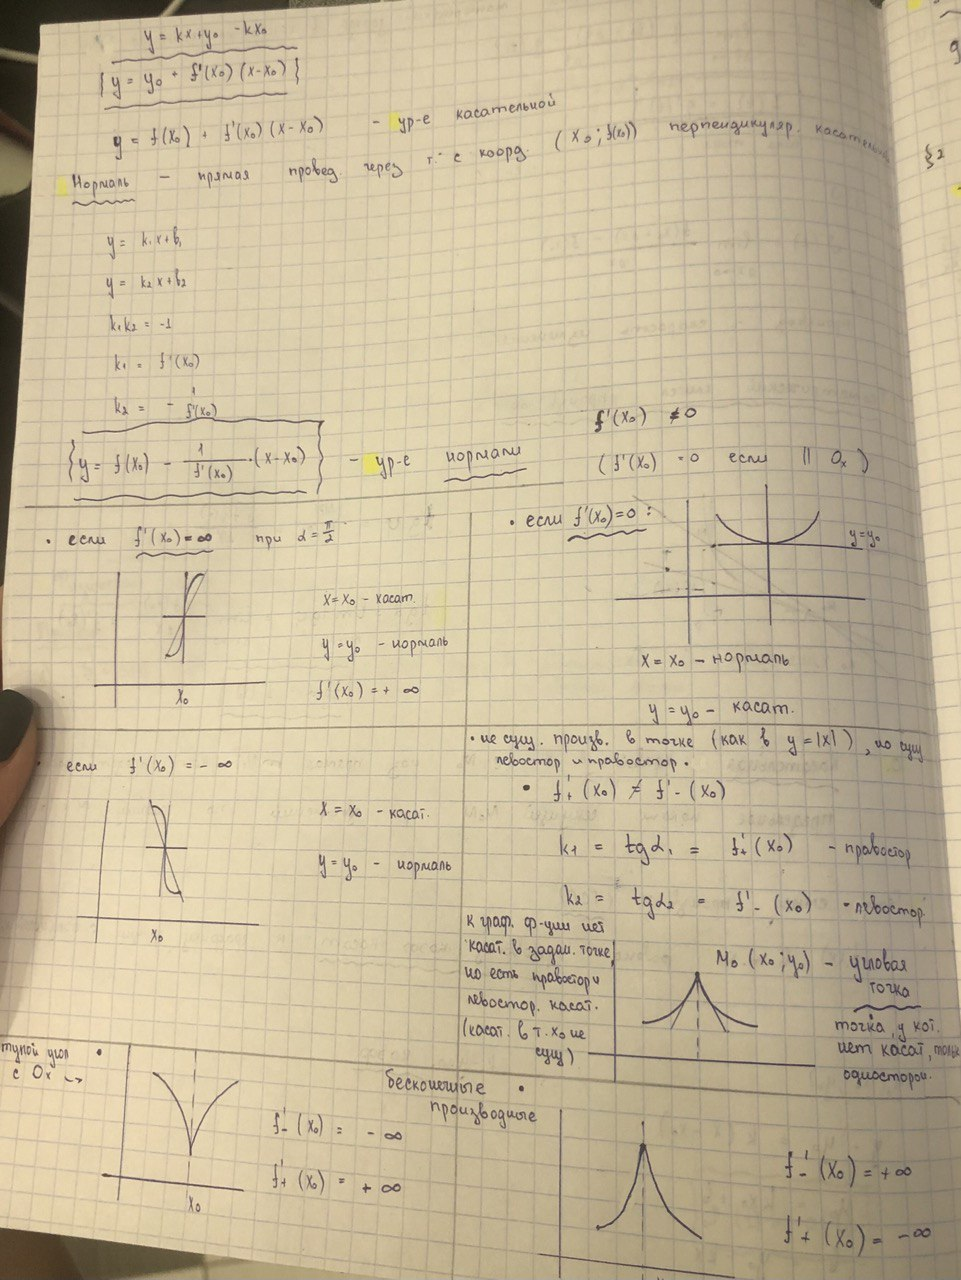 y = kx + y₀ - kx₀
{ y = y₀ + f'(x₀) (x-x₀) }
y = f(x₀) + f'(x₀) (x-x₀) - ур-е касательной
Нормаль - прямая провед. через т. с коорд. (x₀; f(x₀)) перпендикуляр. касательной
§2
y = k₁x+b₁
y = k₂x+b₂
k₁k₂ = -1
k₁ = f'(x₀)
k₂ = - 1/f'(x₀)
f'(x₀) ≠ 0
{ y = f(x₀) - 1/f'(x₀) · (x-x₀) } - ур-е нормали
(f'(x₀) = 0 если || Ox)
• если f'(x₀) = ∞ при α = π/2
x = x₀ - касат.
y = y₀ - нормаль
f'(x₀) = + ∞
x₀
• если f'(x₀) = 0 :
y=y₀
x = x₀ - нормаль
y = y₀ - касат.
• если f'(x₀) = - ∞
x = x₀ - касат.
y = y₀ - нормаль
x₀
• не сущ. произв. в точке (как в y = |x|), но сущ
левостор и правостор.
• f'₊(x₀) ≠ f'₋(x₀)
k₁ = tgα₁ = f'₊(x₀) - правостор
k₂ = tgα₂ = f'₋(x₀) - левостор.
к граф. ф-ции нет
касат. в задан. точке,
но есть правостор и
левостор. касат.
(касат. в т. x₀ не
сущ)
M₀ (x₀; y₀) - угловая
точка
точка, у кот.
нет касат, только
односторон.
тупой угол
с Ox
•
x₀
f'₋(x₀) = - ∞
f'₊(x₀) = + ∞
бесконечные •
производные
f'₋(x₀) = + ∞
f'₊(x₀) = - ∞